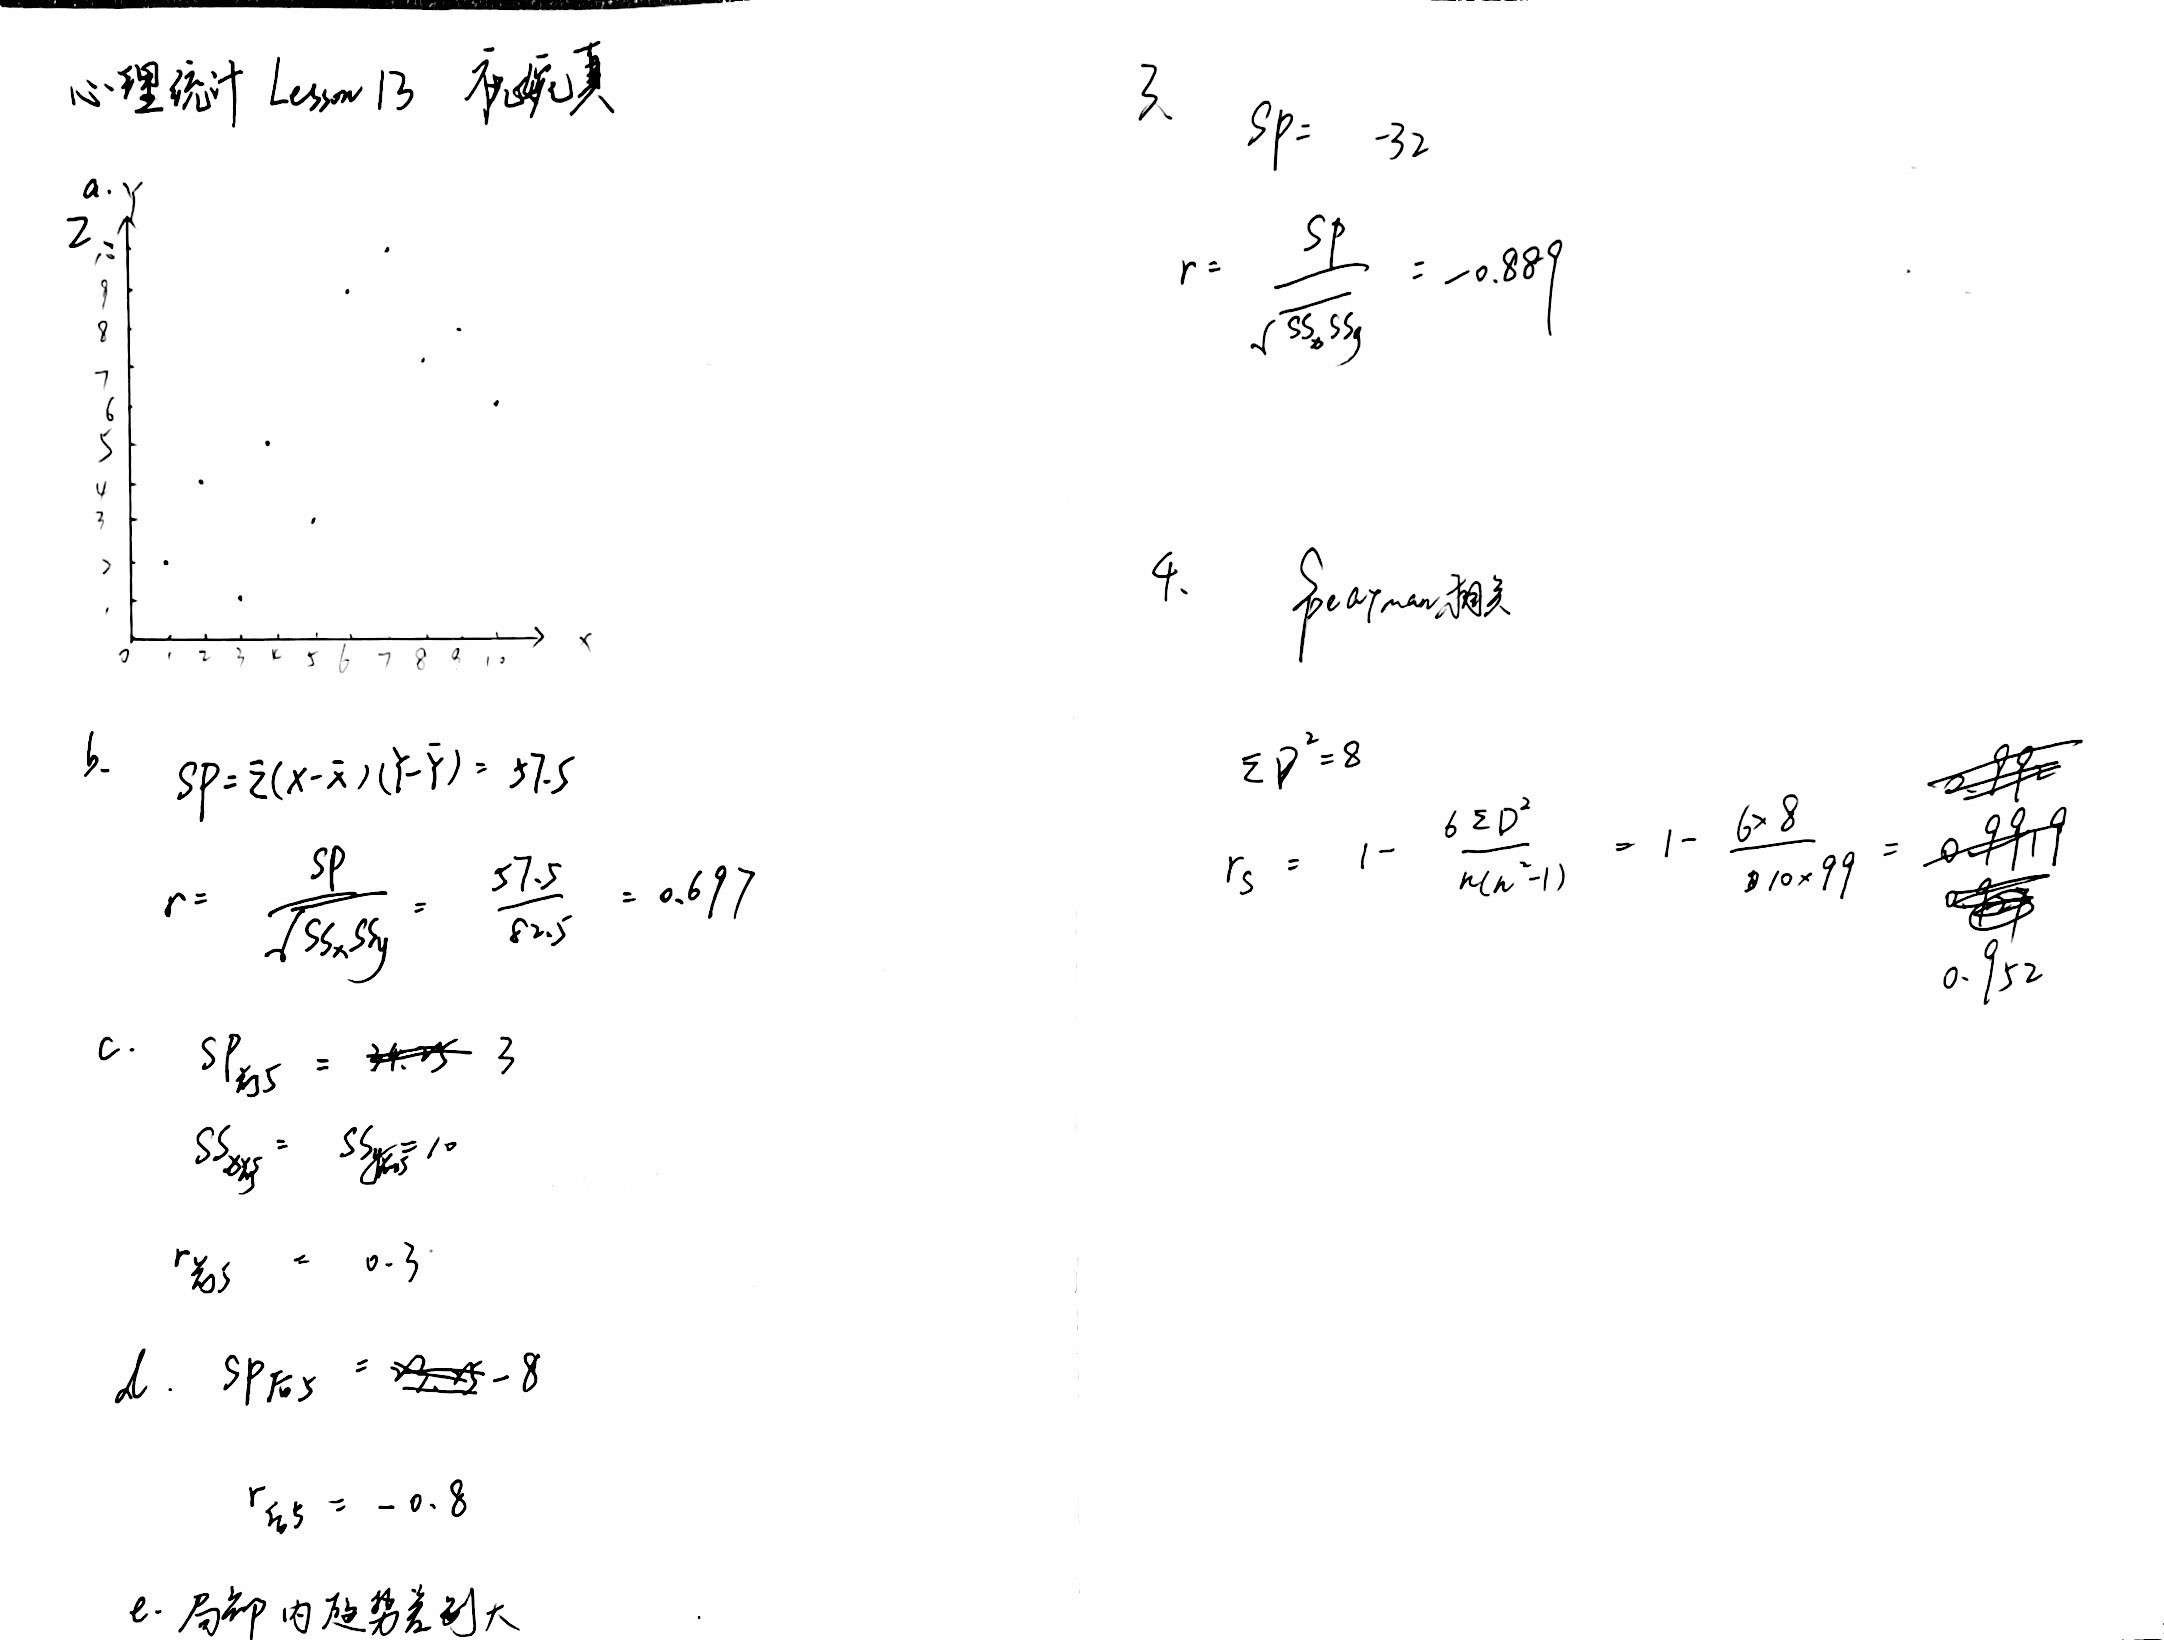 心理统计 Lesson 13
a. Y
2
10
9
8
7
6
5
4
3
2
1
0 1 2 3 4 5 6 7 8 9 10 x
b. SP=Σ(X-X̄)(Y-Ȳ) = 57.5
r = SP / √SSxSSy = 57.5 / 82.5 = 0.697
c. SP前5 = 3
SSx前5 = SSy前5 = 10
r前5 = 0.3
d. SP后5 = -8
r后5 = -0.8
e. 局部内趋势差别大
3、
SP= -32
r = SP / √SSxSSy = -0.889
4、 Spearman相关
ΣD²=8
rs = 1 - 6ΣD² / n(n²-1) = 1 - 6×8 / 10×99 =
0.952